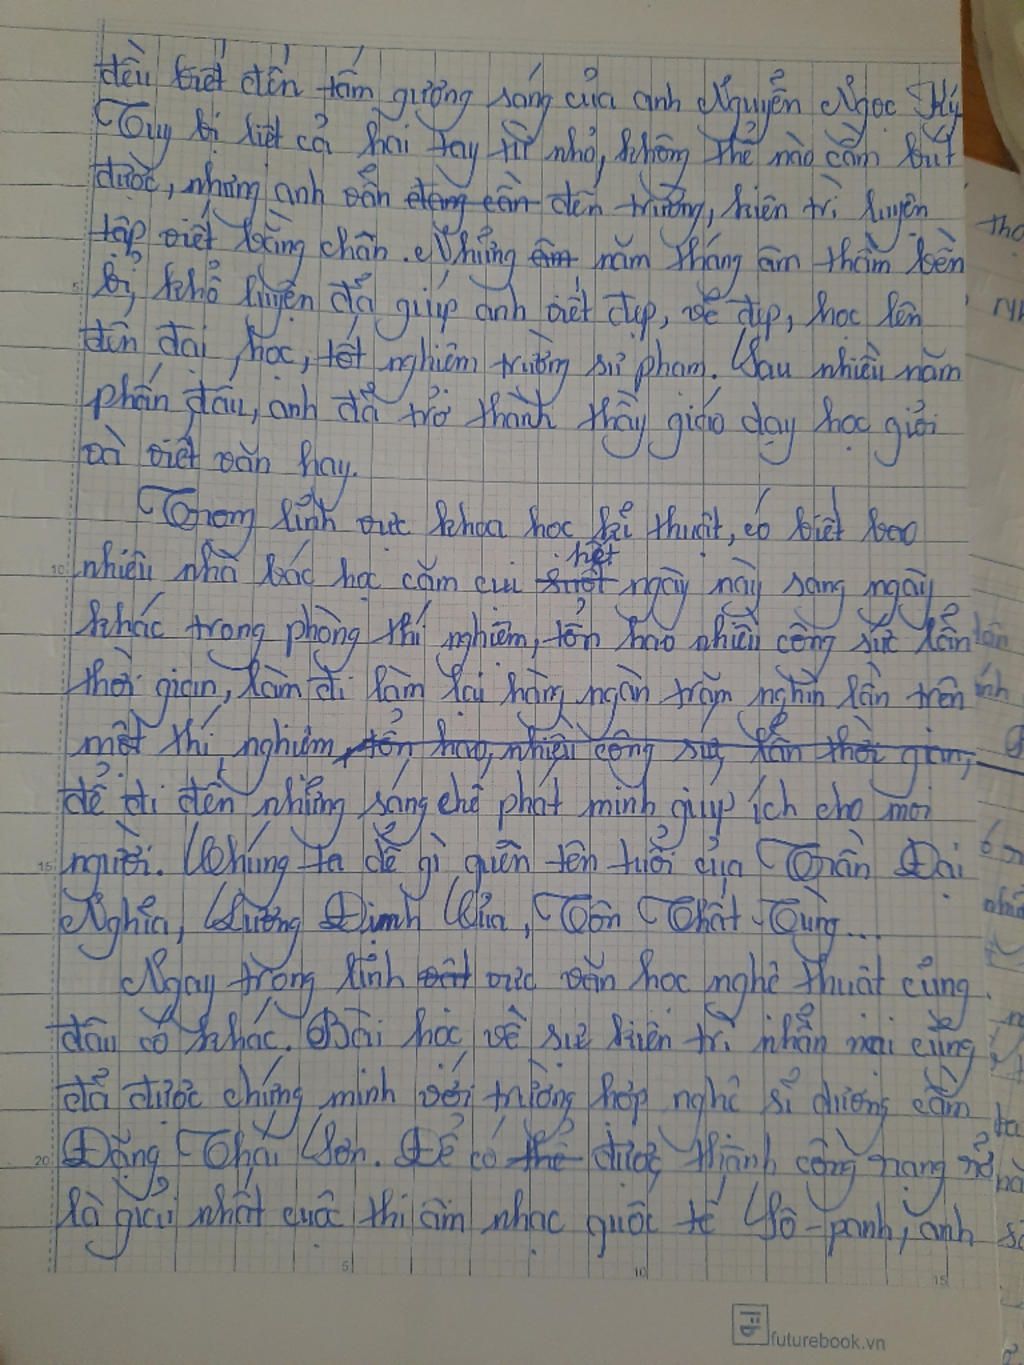 đều biết đến tấm gương sáng của anh Nguyễn Ngọc Ký
Tuy bị liệt cả hai tay từ nhỏ, không thể nào cầm bút
được, nhưng anh vẫn đến trường, kiên trì luyện
tập viết bằng chân. Những năm tháng âm thầm bền
bỉ, khổ luyện đã giúp anh viết đẹp, vẽ đẹp, học lên
đến đại học, tốt nghiệm trường sư phạm. Sau nhiều năm
phấn đấu, anh đã trở thành thầy giáo dạy học giỏi
và viết văn hay.
Trong lĩnh vực khoa học kĩ thuật, có biết bao
nhiêu nhà bác học cặm cụi hết ngày này sang ngày
khác trong phòng thí nghiệm, tổn hao nhiều công sức lẫn
thời gian, làm đi làm lại hàng ngàn trăm nghìn lần trên
một thí nghiệm, tổn hao, nhiều công sức lẫn thời gian,
để đi đến những sáng chế phát minh giúp ích cho mọi
người. Chúng ta dễ gì quên tên tuổi của Trần Đại
Nghĩa, Lương Định Của, Tôn Thất Tùng...
Ngay trong lĩnh vực văn học nghệ thuật cũng
đâu có khác. Bài học về sự kiên trì nhẫn nại cũng
đã được chứng minh với trường hợp nghệ sĩ dương cầm
Đặng Thái Sơn. Để có được thành công rạng rỡ
là giải nhất cuộc thi âm nhạc quốc tế Sô-panh, anh
5
10
15
20
5
10
15
futurebook.vn